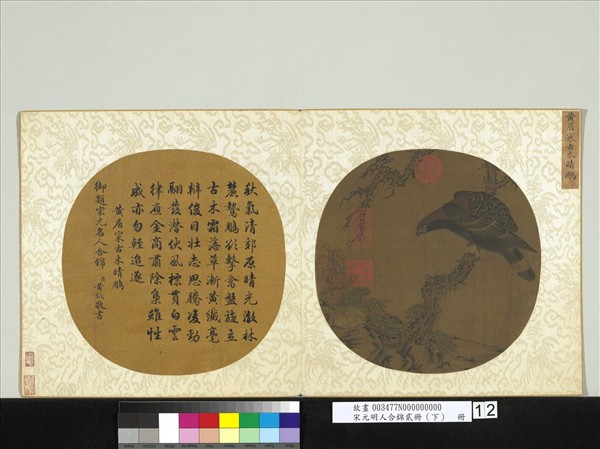 黃居寀古木晴鵰
秋氣清郊原晴光激林
麓鷙鵰欲擊禽盤旋立
古木霜落草漸黃纖毫
辨俊目壯志思騰凌勁
翮發潛伏風標貫白雲
律應金商肅除梟雖性
成亦勿輕追逐
黃居寀古木晴鵰
御題宋元名人合錦 臣黃鉞敬書
故畫 003477N000000000
宋元明人合錦貳冊(下) 冊
12